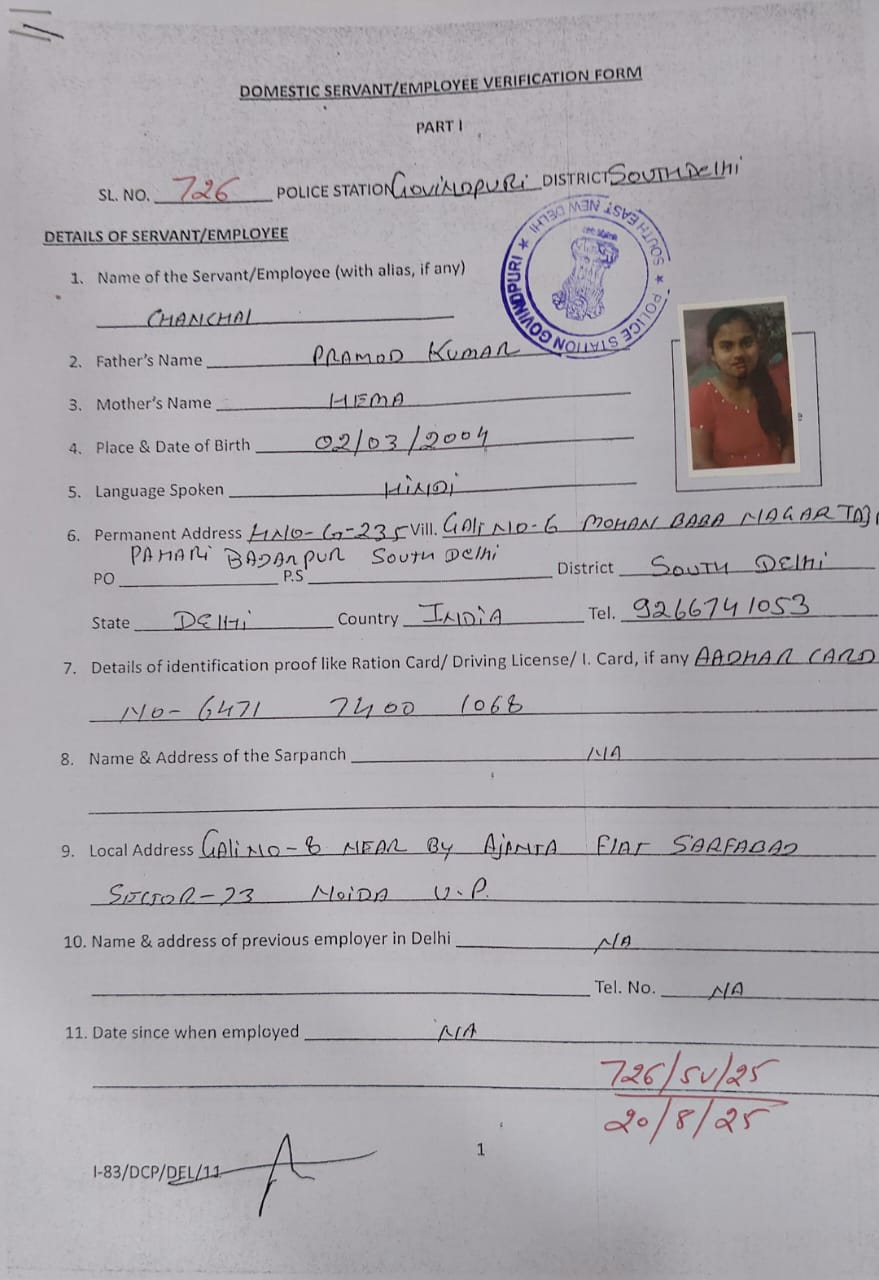 DOMESTIC SERVANT/EMPLOYEE VERIFICATION FORM
PART I
SL. NO. 726 POLICE STATION GOVINDPURI DISTRICT SOUTH DELHI
SOUTH EAST NEW DELHI ★ POLICE STATION GOVINDPURI ★
DETAILS OF SERVANT/EMPLOYEE
1. Name of the Servant/Employee (with alias, if any)
CHANCHAL
2. Father's Name PRAMOD KUMAR
3. Mother's Name HEMA
4. Place & Date of Birth 02/03/2004
5. Language Spoken HINDI
6. Permanent Address HNO-G-235 Vill. GALI NO-6 MOHAN BABA NAGAR TAJ
PAHARI BADARPUR SOUTH DELHI
PO P.S District SOUTH DELHI
State DELHI Country INDIA Tel. 9266741053
7. Details of identification proof like Ration Card/ Driving License/ I. Card, if any AADHAR CARD
NO- 6471 7400 1068
8. Name & Address of the Sarpanch NA
9. Local Address GALI NO-8 NEAR BY AJANTA FLAT SARFABAD
SECTOR-73 NOIDA U.P.
10. Name & address of previous employer in Delhi N/A
Tel. No. NA
11. Date since when employed N/A
726/SV/25
20/8/25
1
I-83/DCP/DEL/11